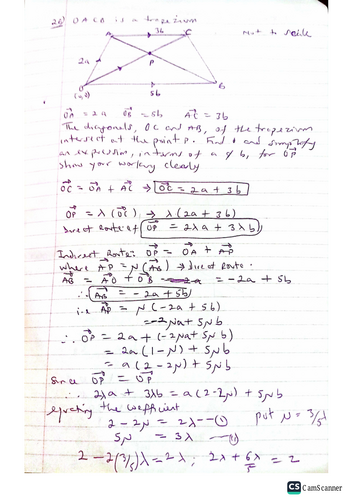 26) OACB is a trapezium
A 3b C Not to scale
2a P
O B
(0,0) 5b
OA = 2a OB = 5b AC = 3b
The diagonals, OC and AB, of the trapezium
intersect at the point P. Find and simplify
an expression, in terms of a & b, for OP
Show your working clearly
OC = OA + AC → OC = 2a + 3b
OP = λ(OC) → λ(2a + 3b)
Direct Route of OP = 2λa + 3λb
Indirect Route: OP = OA + AP
where AP = N(AB) → direct Route.
AB = AO + OB = -2a + 5b
∴ AB = -2a + 5b
i.e AP = N(-2a + 5b)
= -2Na + 5Nb
∴ OP = 2a + (-2Na + 5Nb)
= 2a(1-N) + 5Nb
= a(2-2N) + 5Nb
Since OP = OP
∴ 2λa + 3λb = a(2-2N) + 5Nb
equating the coefficient
2-2N = 2λ — (i) put N = 3/5λ
5N = 3λ — (ii)
2-2(3/5)λ = 2λ; 2λ + 6λ/5 = 2
CS CamScanner